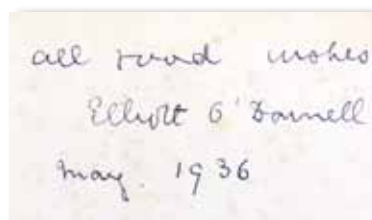 all good wishes
Elliott O'Donnell
May. 1936